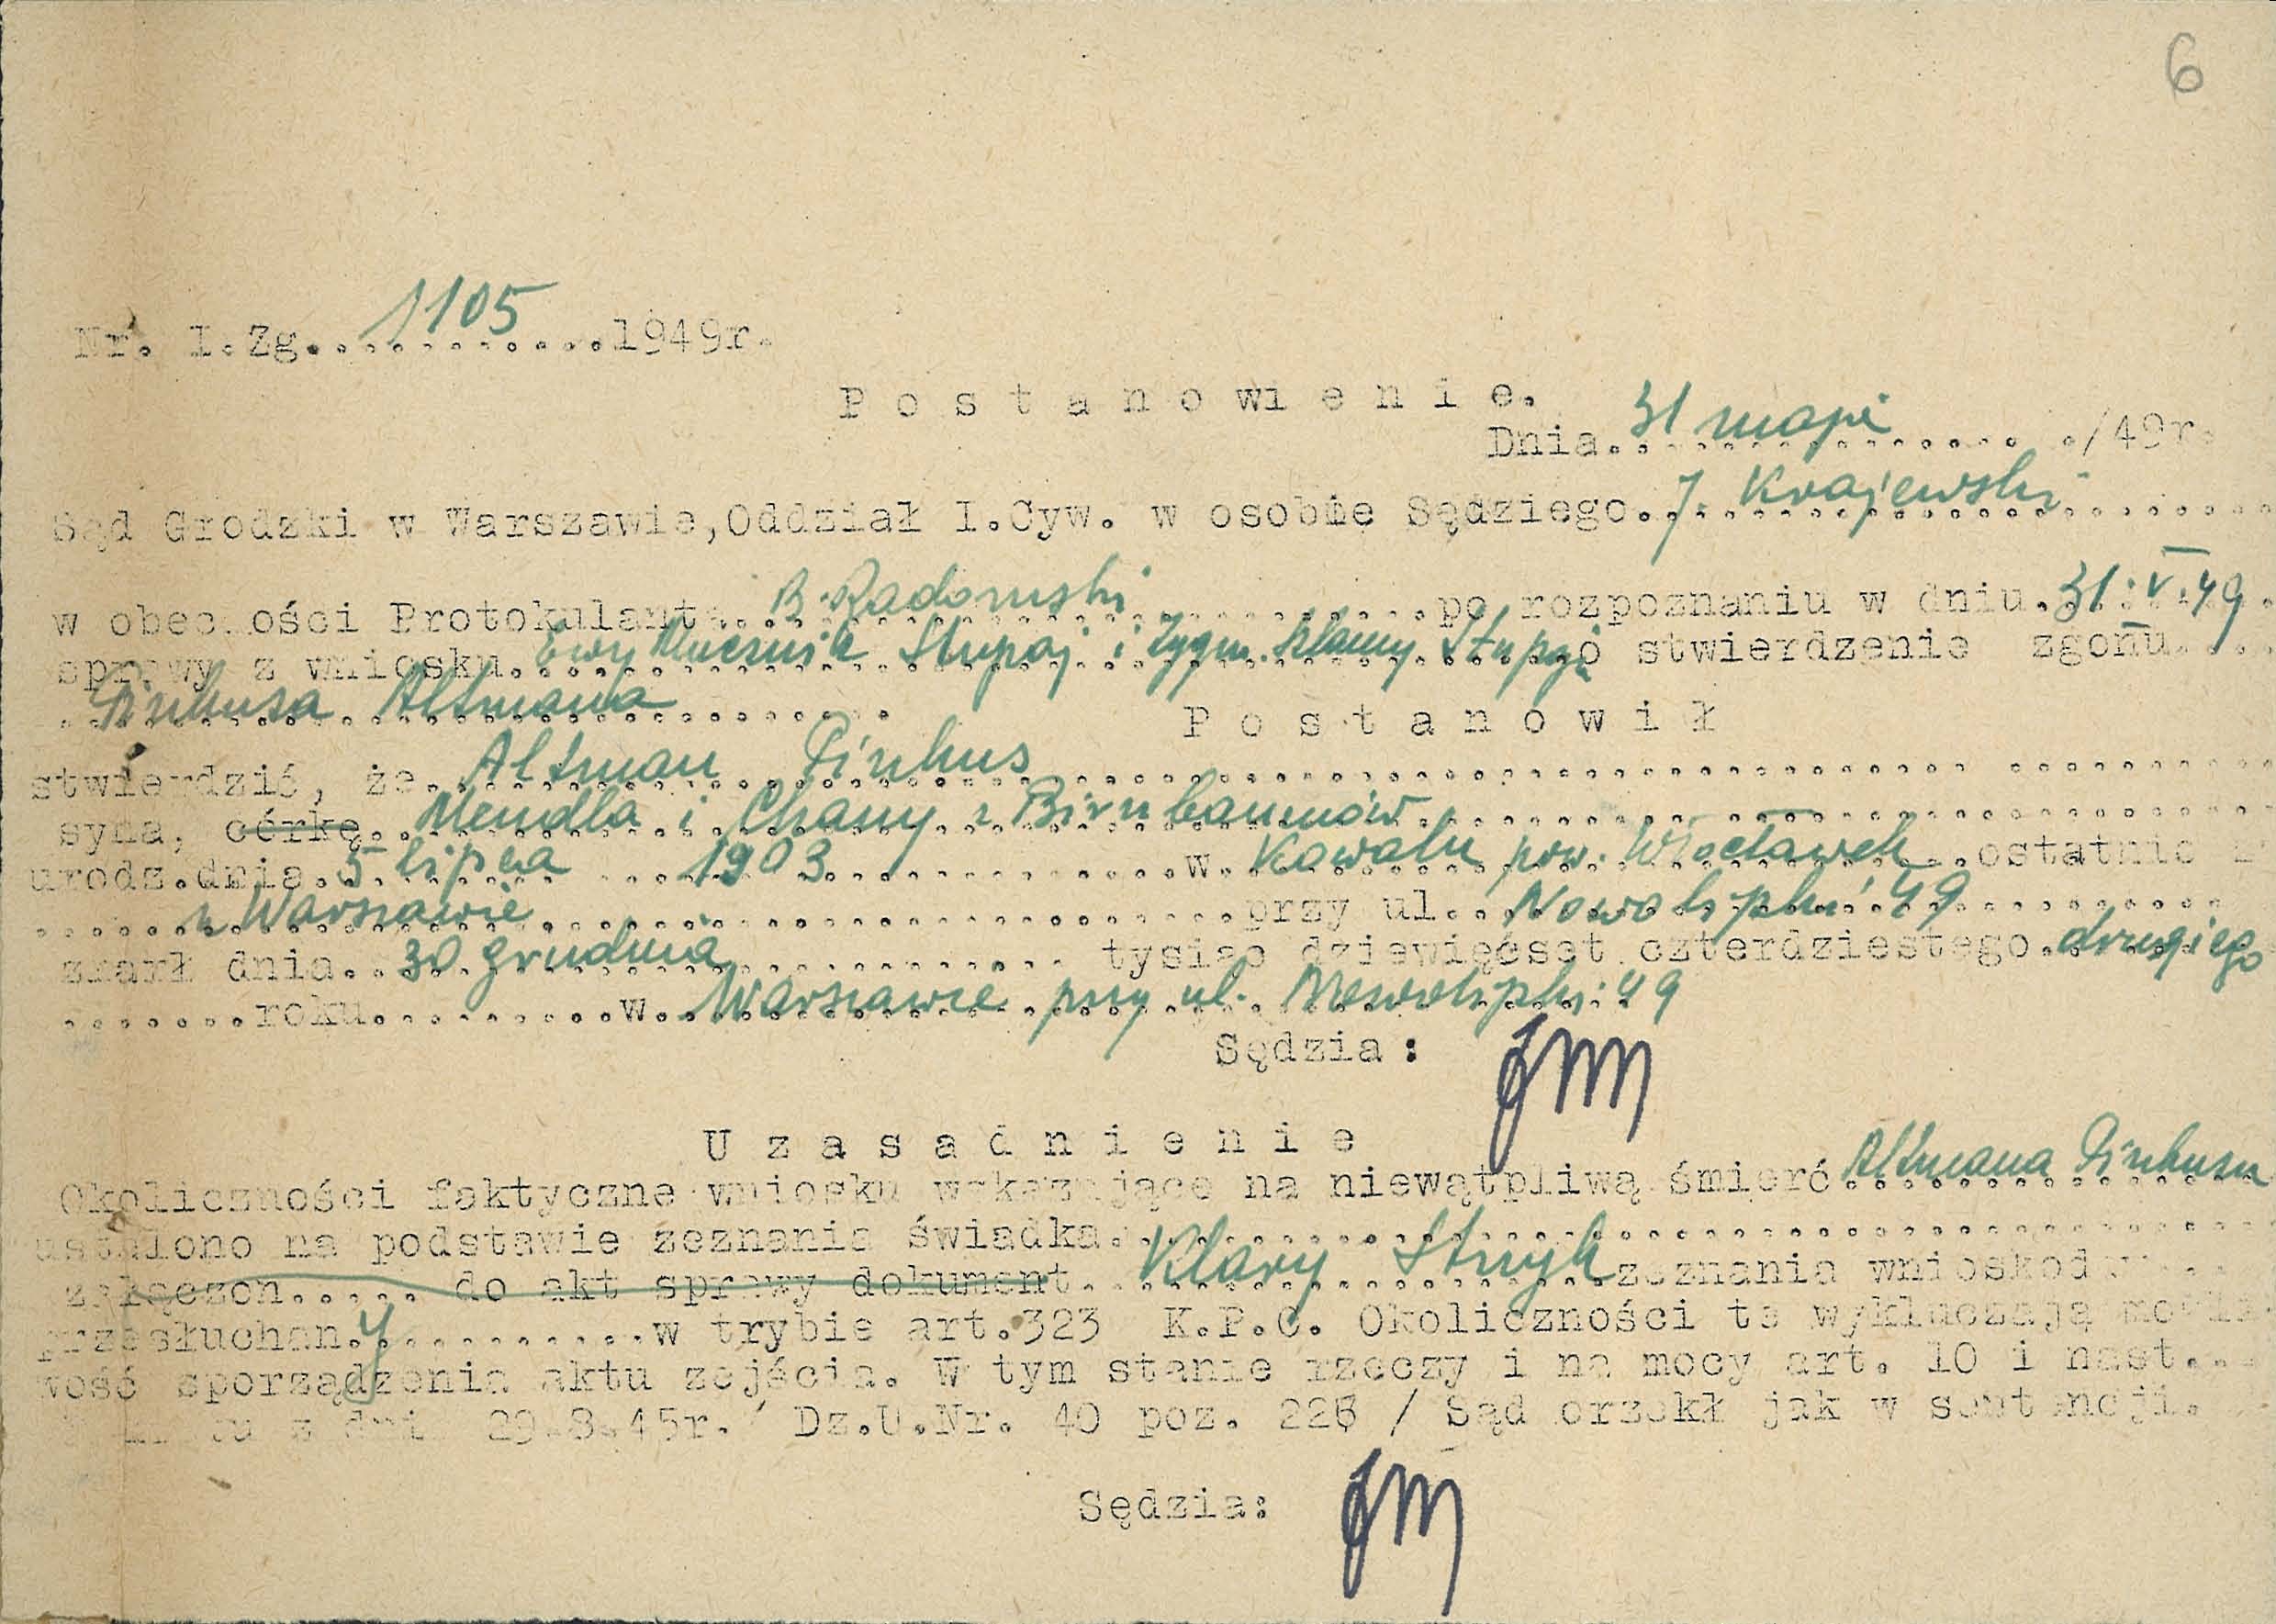 6
Nr. I.Zg. 1105 1949r.
Postanowienie.
Dnia 31 maja /49r.
Sąd Grodzki w Warszawie, Oddział I.Cyw. w osobie Sędziego J. Krajewski
w obecności Protokulanta B. Radomski po rozpoznaniu w dniu 31.V.49
sprawy z wniosku Ewy Stupaj i Zygm. Stupaj o stwierdzenie zgonu
Pinkusa Altmana
Postanowił
stwierdzić, że Altman Pinkus
syna, córkę Mendla i Chany z Birnbaumów
urodz. dnia 5 lipca 1903 w Kowalu pow. Włocławek ostatnio
z Warszawie przy ul. Nowolipki 49
zmarł dnia 30 grudnia tysiąc dziewięćset czterdziestego drugiego
roku w Warszawie przy ul. Nowolipki 49
Sędzia:
Uzasadnienie
Okoliczności faktyczne wniosku wskazujące na niewątpliwą śmierć Altmana Pinkusa
ustalono na podstawie zeznania świadka
załączon..... do akt sprawy dokument Klary Stryk zeznania
przesłuchany w trybie art. 323 K.P.C. Okoliczności te wykluczają możli
wość sporządzenia aktu zejścia. W tym stanie rzeczy i na mocy art. 10 i nast...
z dni 29.8.45r. Dz.U.Nr. 40 poz. 226 / Sąd orzekł jak w sentencji.
Sędzia: